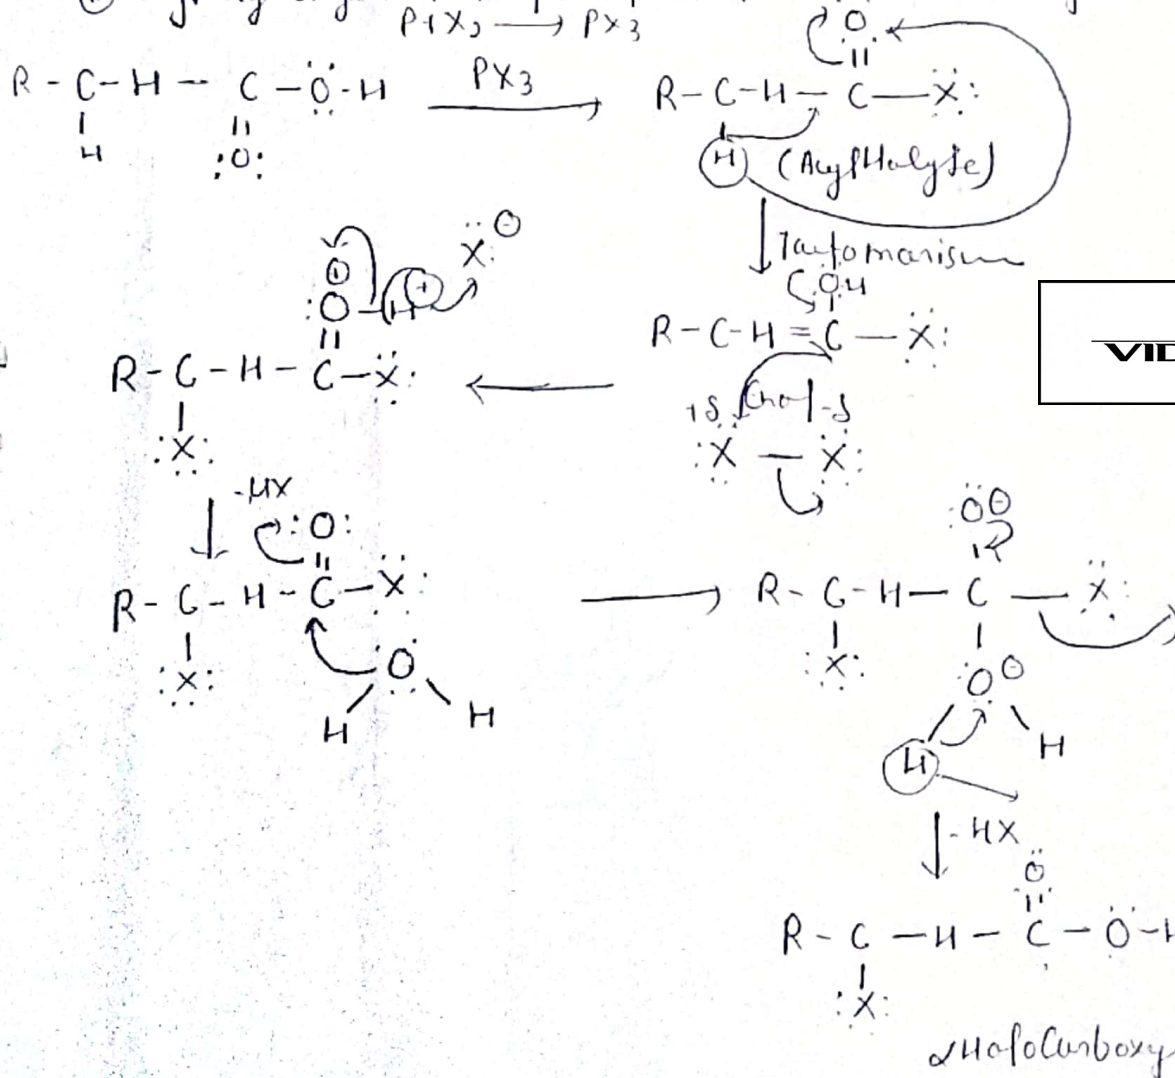 P+X₂ ⟶ PX₃
R - C - H - C - Ö - H
H
:O:
PX3
R - C - H - C - X:
O
H
(AcylHalyde)
Tautomarism
OH
R - C - H = C - X:
Enol
+δ -δ
:X - X:
X ⊖
:O - H ⊕
R - C - H - C - X:
:X:
-HX
:O:
R - C - H - C - X:
:X:
O
H H
:O ⊖
R - C - H - C - X:
:X:
O ⊖
H
H
-HX
O
R - C - H - C - O - H
:X:
αHaloCarboxy
VID